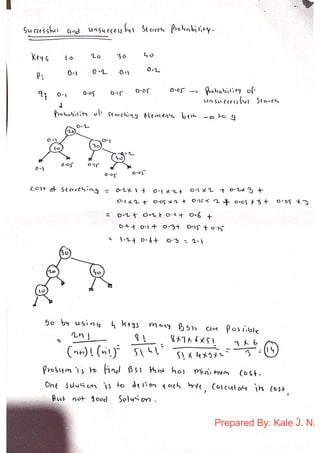 Successful and unsuccessful Search Probability.
Keys 10 20 30 40
Pi 0.1 0.2 0.1 0.2
qi 0.1 0.05 0.15 0.05 0.05 → Probability of
unsuccessful Search
Probability of searching elements betn -∞ to 9
0.2
20
0.1 0.1
10 30
0.2
40
0.1 0.05 0.15
0.05 0.05
cost of searching = 0.2×1 + 0.1×2 + 0.1×2 + 0.2×3 +
0.1×2 + 0.05×2 + 0.15×2 + 0.05×3 + 0.05×3
= 0.2 + 0.2 + 0.2 + 0.6 +
0.2 + 0.1 + 0.3 + 0.15 + 0.15
= 1.2 + 0.6 + 0.3 = 2.1
30
20 40
10
So by using 4 keys many BSTs are possible
= 2n! / (n+1)! (n!) = 8! / 5! 4! = 8×7×6×5! / 5! × 4×3×2 = 7×6 / 3 = 14
Problem is to find BST that has minimum cost.
One solution is to design each tree, calculate its cost,
But not good solution.
Prepared By: Kale J. N.